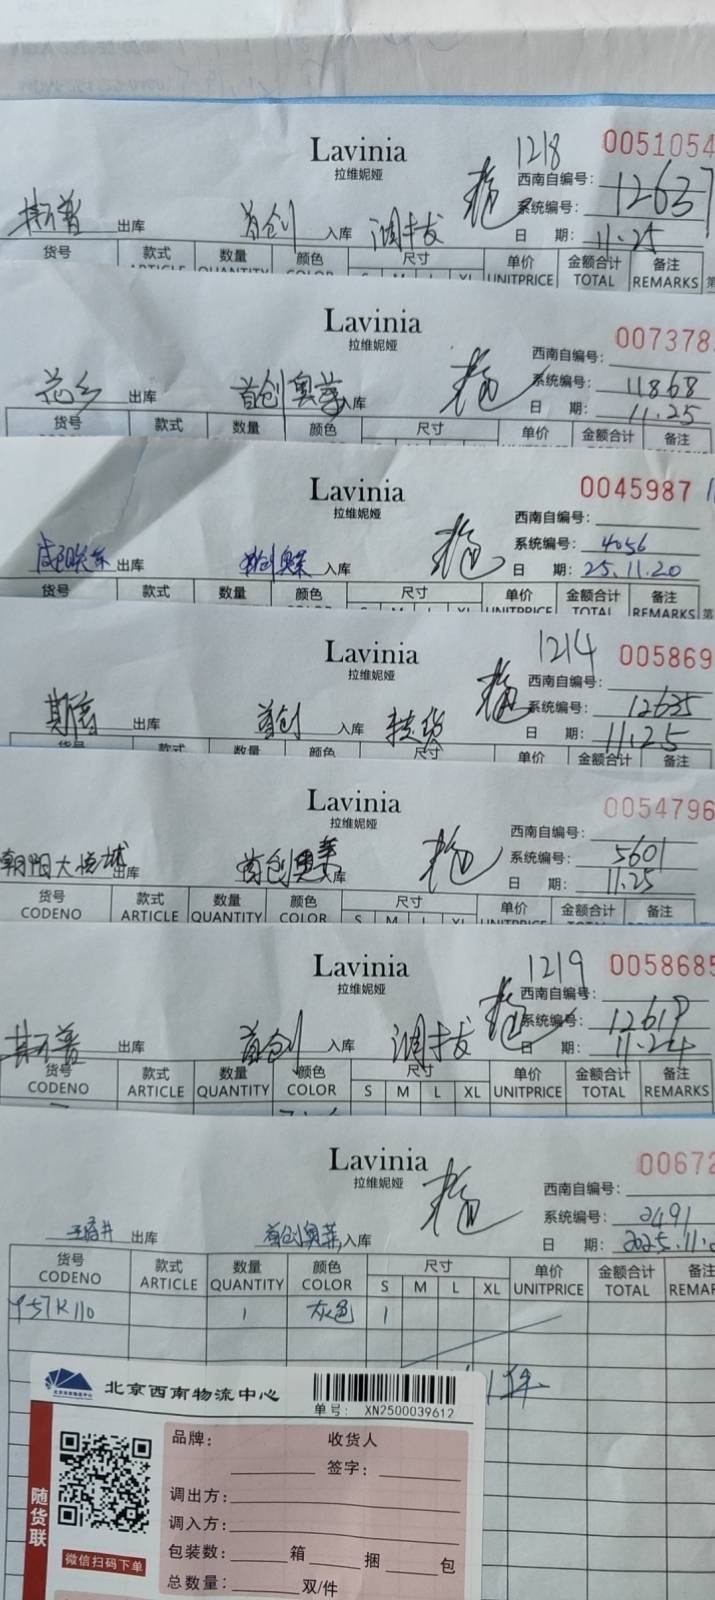 Lavinia 1218 0051054
拉维妮娅 西南自编号:
系统编号: 12637
斯普 出库 首创 入库 调拔 日 期: 11.25
货号 款式 数量 颜色 尺寸 单价 金额合计 备注
ARTICLE QUANTITY COLOR S M L XL UNITPRICE TOTAL REMARKS
Lavinia 007378
拉维妮娅 西南自编号:
系统编号: 11868
花乡 出库 首创奥莱 入库 日 期: 11.25
货号 款式 数量 颜色 尺寸 单价 金额合计 备注
Lavinia 0045987
拉维妮娅 西南自编号:
系统编号: 4056
出库 首创奥莱 入库 日 期: 25.11.20
货号 款式 数量 颜色 尺寸 单价 金额合计 备注
UNITPRICE TOTAL REMARKS
Lavinia 1214 005869
拉维妮娅 西南自编号:
系统编号: 12635
斯普 出库 首创 入库 日 期: 11.25
货号 款式 数量 颜色 尺寸 单价 金额合计 备注
Lavinia 0054796
拉维妮娅 西南自编号:
系统编号: 5601
朝阳大悦城 出库 首创奥莱 入库 日 期: 11.25
货号 款式 数量 颜色 尺寸 单价 金额合计 备注
CODENO ARTICLE QUANTITY COLOR S M L XL UNITPRICE TOTAL REMARKS
Lavinia 1219 0058685
拉维妮娅 西南自编号:
系统编号: 12619
斯普 出库 首创 入库 调拔 日 期: 11.24
货号 款式 数量 颜色 尺寸 单价 金额合计 备注
CODENO ARTICLE QUANTITY COLOR S M L XL UNITPRICE TOTAL REMARKS
Lavinia 00672
拉维妮娅 西南自编号:
系统编号: 2491
王府井 出库 首创奥莱 入库 日 期: 2025.11.
货号 款式 数量 颜色 尺寸 单价 金额合计 备注
CODENO ARTICLE QUANTITY COLOR S M L XL UNITPRICE TOTAL REMAR
Y57K110 1 灰色 1
1件
北京西南物流中心
单号: XN2500039612
品牌: 收货人
签字:
调出方:
调入方:
包装数: 箱 捆 包
总数量: 双/件
随货联
微信扫码下单